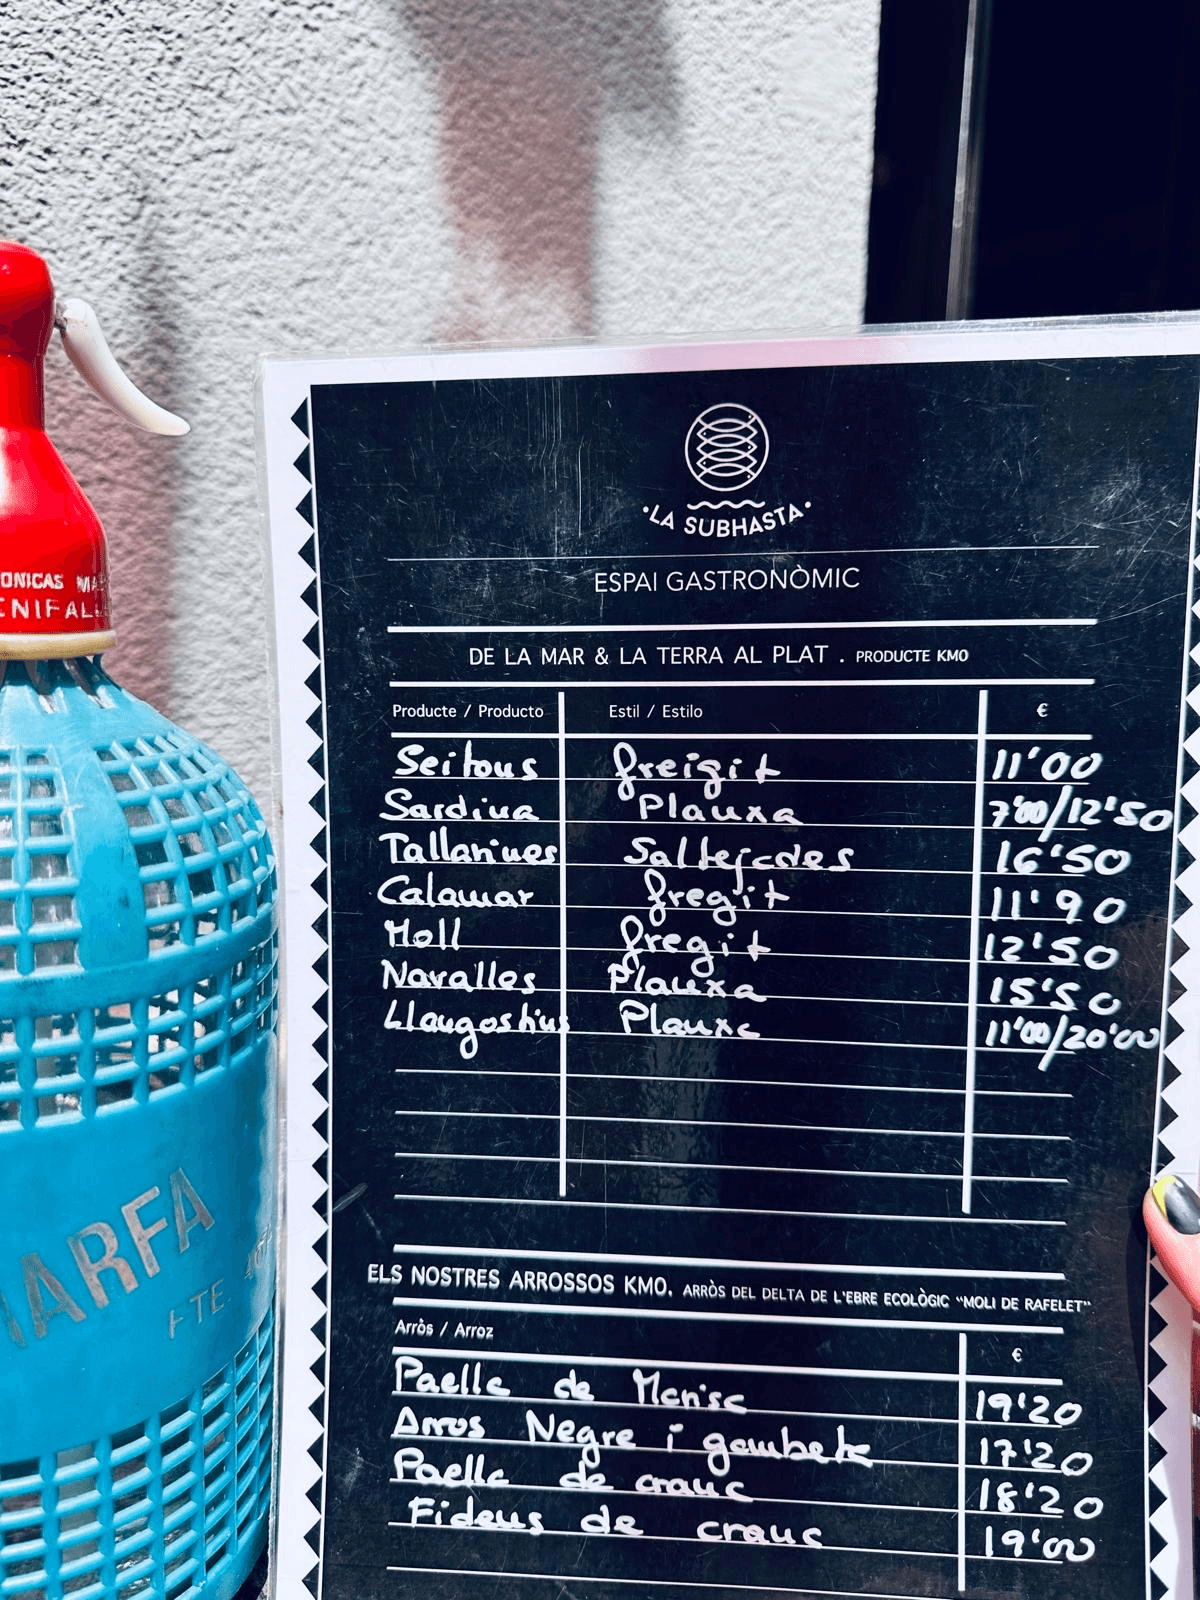 ONICAS MA
ENIFALL
MARFA
TE
·LA SUBHASTA·
ESPAI GASTRONÒMIC
DE LA MAR & LA TERRA AL PLAT . PRODUCTE KM0
Producte / Producto Estil / Estilo €
Seitous freigit 11'00
Sardina Planxa 7'00/12'50
Tallarines Saltejades 16'50
Calamar fregit 11'90
Moll fregit 12'50
Navalles Planxa 15'50
Llangostins Planxa 11'00/20'00
ELS NOSTRES ARROSSOS KM0. ARRÒS DEL DELTA DE L'EBRE ECOLÒGIC "MOLI DE RAFELET"
Arròs / Arroz €
Paella de Marisc 19'20
Arros Negre i gambeta 17'20
Paella de cranc 18'20
Fideus de cranc 19'00